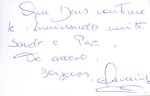 Que Deus continue
te iluminando muita
Saúde e Paz,
Te adoro.
Beijocas